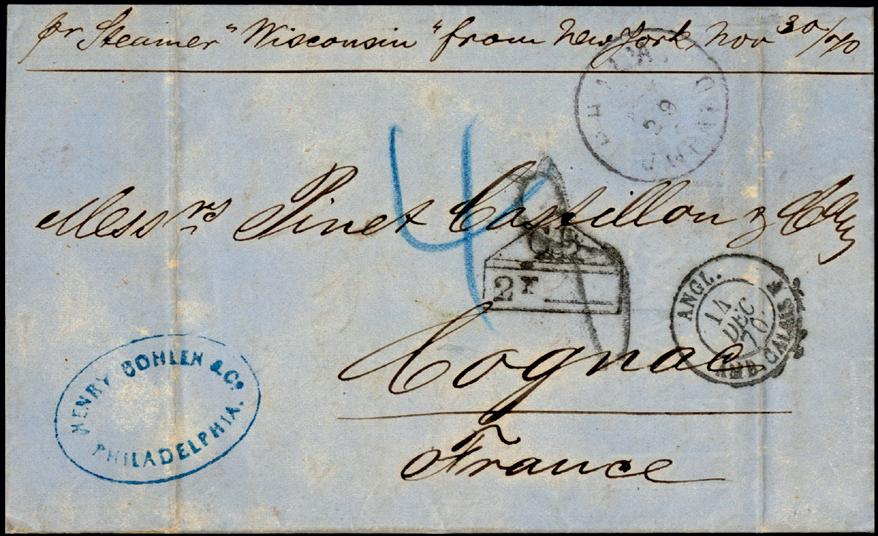 pr Steamer "Wisconsin" from New York Nov 30/70
PHILAD'A
29
Mess rs Pinet Castillon & Co
4
GB
2F
ANGL.
14
DEC
70
AMB. CALAIS
Cognac
France
HENRY BOHLEN & Co.
PHILADELPHIA.